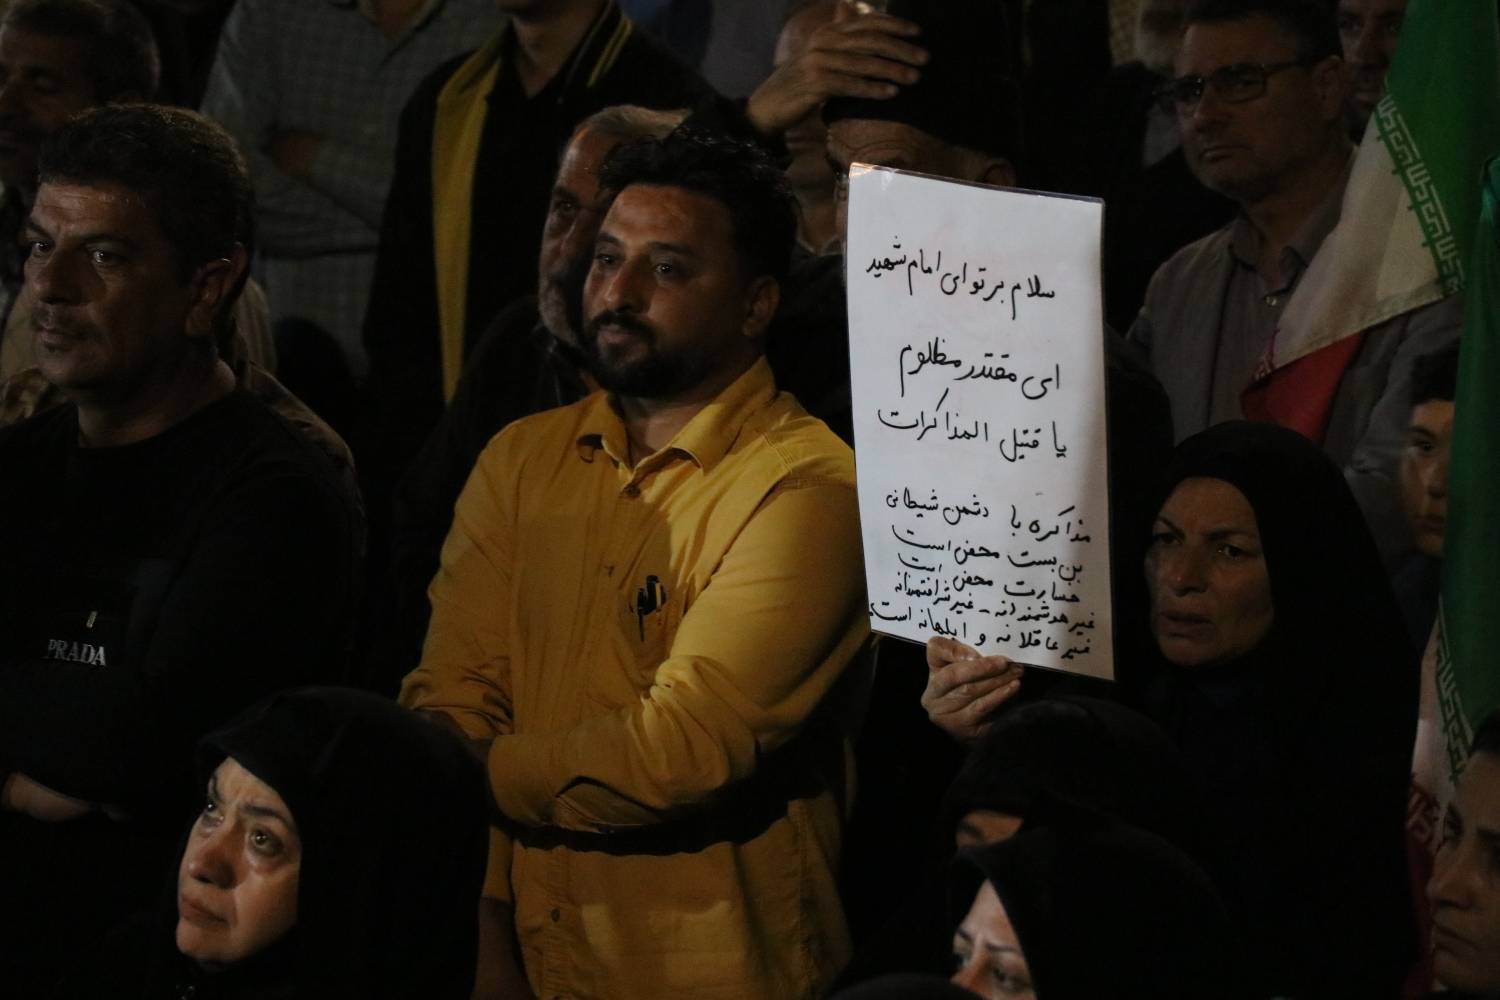 سلام بر تو ای امام شهید
ای مقتدر مظلوم
یا قتیل المذاکرات
مذاکره با دشمن شیطانی
بن بست محض است
خسارت محض است
غیر هوشمندانه - غیر شرافتمندانه
غیر عاقلانه و ابلهانه است
PRADA